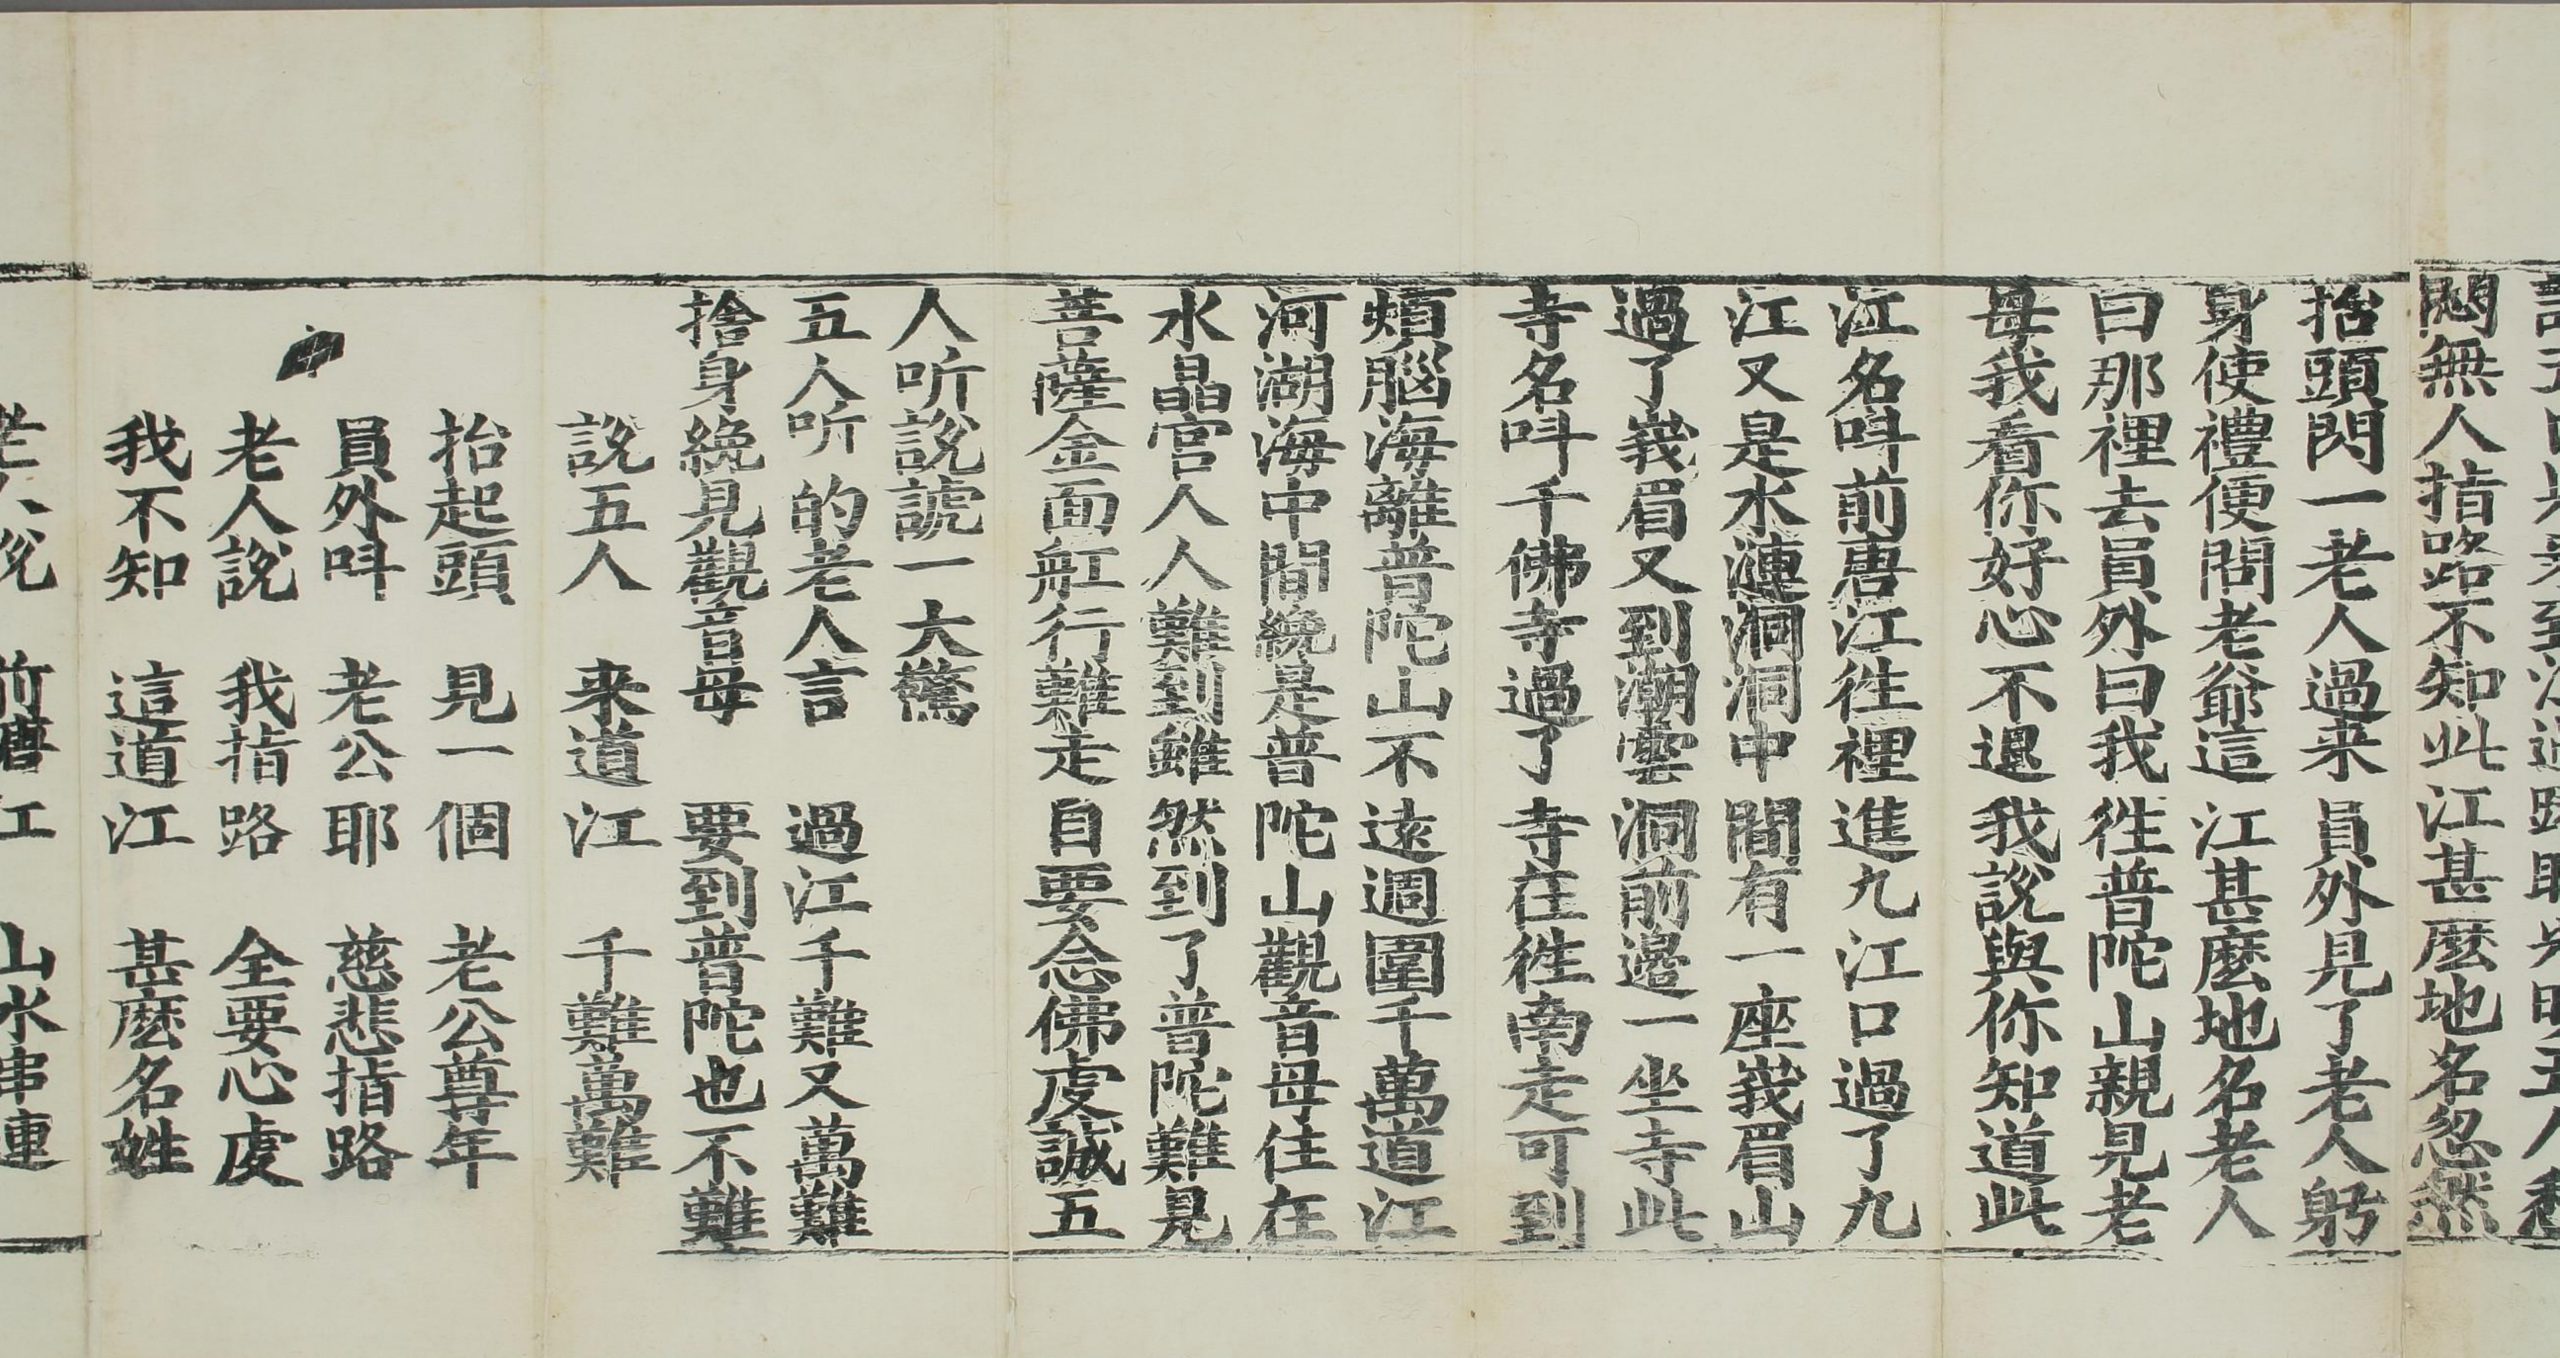 悶無人指路不知此江甚麽地名忽然
抬頭閃一老人過来員外見了老人躬
身使禮便問老爺這江甚麽地名老人
曰那裡去員外曰我徃普陀山親見老
母我看你好心不退我說與你知道此
江名呌前唐江徃裡進九江口過了九
江又是水漣洞洞中間有一座峩眉山
過了峩眉又到潮雲洞前邊一坐寺此
寺名呌千佛寺過了寺在徃南走可到
煩腦海離普陀山不遠週圍千萬道江
河湖海中間纔是普陀山觀音母住在
水晶宫人人難到雖然到了普陀難見
菩薩金面舡行難走自要念佛虔誠五
人听說諕一大驚
五人听的老人言 過江千難又萬難
捨身纔見觀音母 要到普陀也不難
說五人 来道江 千難萬難
抬起頭 見一個 老公尊年
員外呌 老公耶 慈悲指路
老人說 我指路 全要心虔
我不知 這道江 甚麽名姓
老人說 前唐江 山水串連